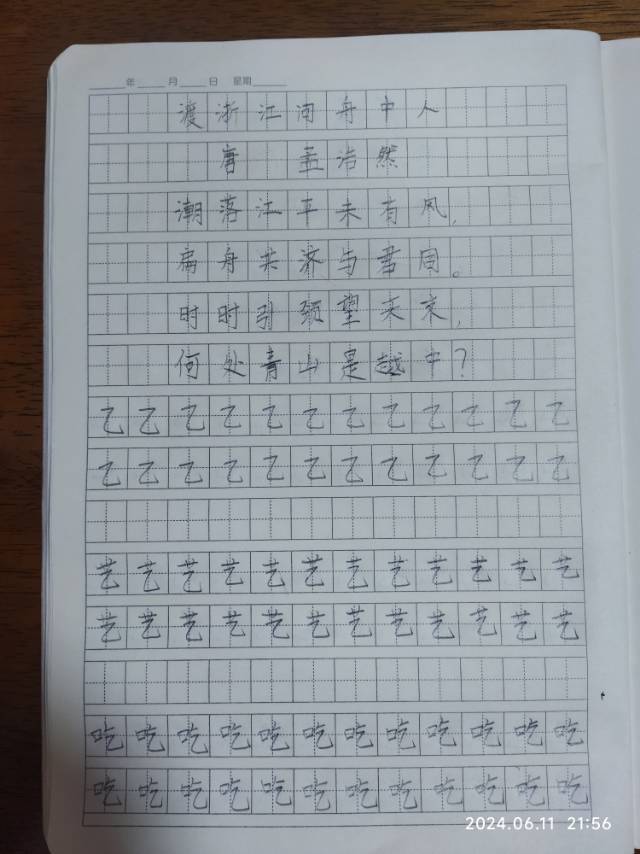 年 月 日 星期
渡浙江问舟中人
唐 孟浩然
潮落江平未有风,
扁舟共济与君同。
时时引颈望来京,
何处青山是越中?
乙乙乙乙乙乙乙乙乙乙乙乙
乙乙乙乙乙乙乙乙乙乙乙乙
艺艺艺艺艺艺艺艺艺艺艺艺
艺艺艺艺艺艺艺艺艺艺艺艺
吃吃吃吃吃吃吃吃吃吃吃吃
吃吃吃吃吃吃吃吃吃吃吃吃
2024.06.11 21:56